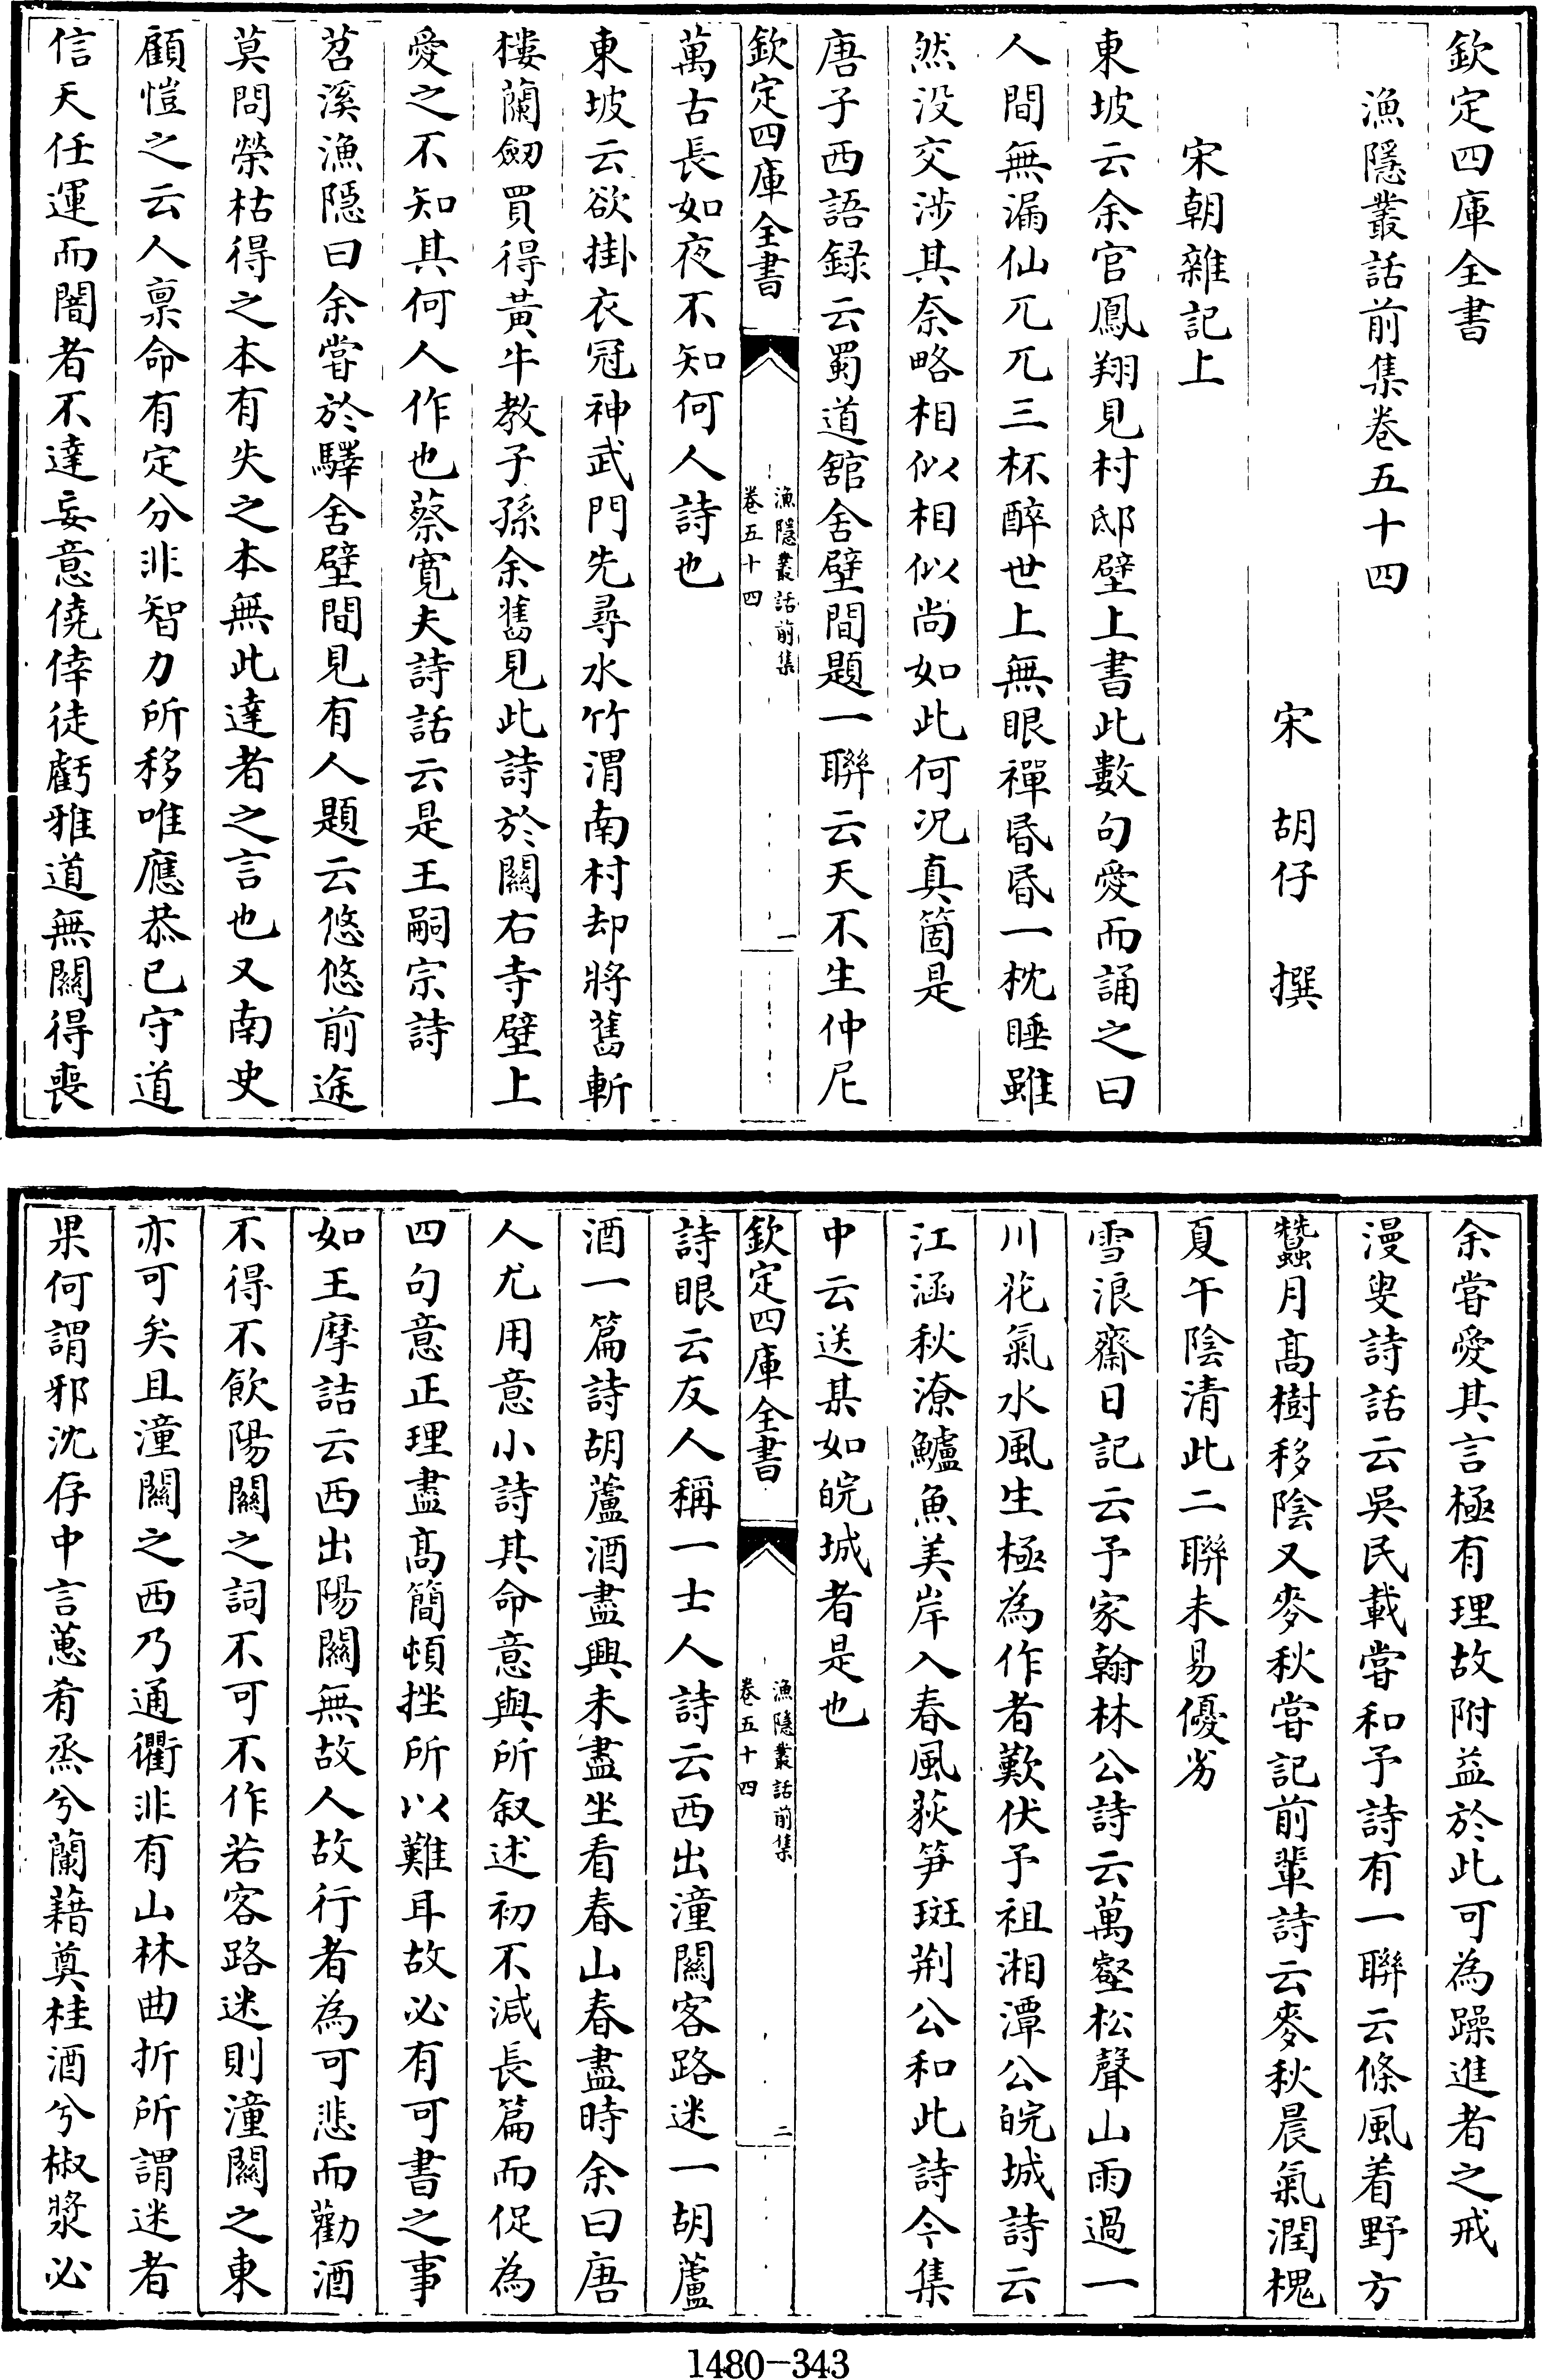 欽定四庫全書
漁隱叢話前集卷五十四
宋 胡仔 撰
宋朝雜記上
東坡云余官鳳翔見村邸壁上書此數句愛而誦之曰
人間無漏仙兀兀三杯醉世上無眼禪昏昏一枕睡雖
然没交涉其奈略相似相似尚如此何況真箇是
唐子西語録云蜀道舘舍壁間題一聯云天不生仲尼
欽定四庫全書
漁隱叢話前集
卷五十四
一
萬古長如夜不知何人詩也
東坡云欲掛衣冠神武門先尋水竹渭南村却將舊斬
樓蘭劒買得黃牛教子孫余舊見此詩於關右寺壁上
愛之不知其何人作也蔡寬夫詩話云是王嗣宗詩
苕溪漁隱曰余嘗於驛舍壁間見有人題云悠悠前途
莫問榮枯得之本有失之本無此達者之言也又南史
顧愷之云人稟命有定分非智力所移唯應恭已守道
信天任運而闇者不達妄意僥倖徒虧雅道無關得喪
余嘗愛其言極有理故附益於此可為躁進者之戒
漫叟詩話云吳民載嘗和予詩有一聯云條風着野方
蠶月高樹移陰又麥秋嘗記前輩詩云麥秋晨氣潤槐
夏午陰清此二聯未易優劣
雪浪齋日記云予家翰林公詩云萬壑松聲山雨過一
川花氣水風生極為作者歎伏予祖湘潭公皖城詩云
江涵秋潦鱸魚美岸入春風荻笋斑荆公和此詩今集
中云送某如皖城者是也
欽定四庫全書
漁隱叢話前集
卷五十四
二
詩眼云友人稱一士人詩云西出潼關客路迷一胡蘆
酒一篇詩胡蘆酒盡興未盡坐看春山春盡時余曰唐
人尤用意小詩其命意與所叙述初不減長篇而促為
四句意正理盡高簡頓挫所以難耳故必有可書之事
如王摩詰云西出陽關無故人故行者為可悲而勸酒
不得不飲陽關之詞不可不作若客路迷則潼關之東
亦可矣且潼關之西乃通衢非有山林曲折所謂迷者
果何謂邪沈存中言蕙肴烝兮蘭藉奠桂酒兮椒漿必
1480-343